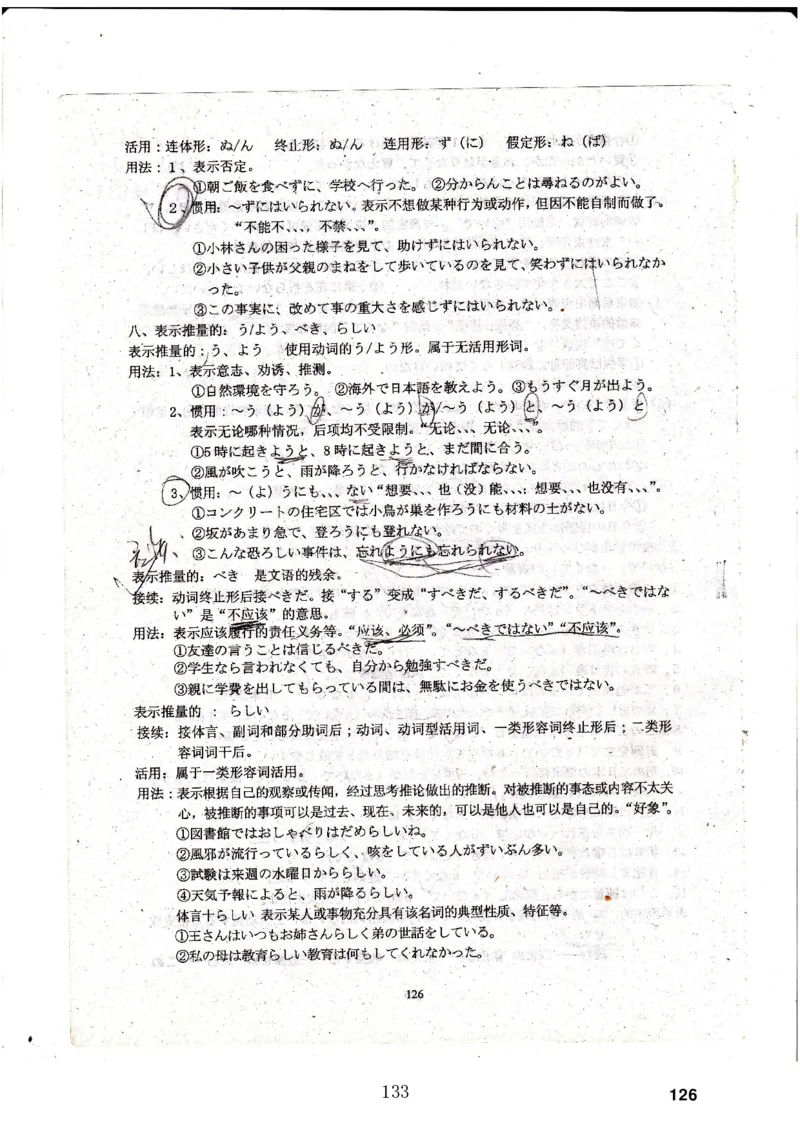 活用：连体形：ぬ/ん　终止形：ぬ/ん　连用形：ず（に）　假定形：ね（ば）
用法：1、表示否定。
①朝ご飯を食べずに、学校へ行った。 ②分からんことは尋ねるのがよい。
2、惯用：～ずにはいられない。表示不想做某种行为或动作，但因不能自制而做了。
“不能不、、，不禁、、”。
①小林さんの困った様子を見て、助けずにはいられない。
②小さい子供が父親のまねをして歩いているのを見て、笑わずにはいられなか
った。
③この事実に、改めて事の重大さを感じずにはいられない。
八、表示推量的：う/よう、べき、らしい
表示推量的：う、よう　使用动词的う/よう形。属于无活用形词。
用法：1、表示意志、劝诱、推测。
①自然環境を守ろう。 ②海外で日本語を教えよう。③もうすぐ月が出よう。
2、惯用：～う（よう）が、～う（よう）が/～う（よう）と、～う（よう）と
表示无论哪种情况，后项均不受限制。“无论、、、无论、、、”。
①5時に起きようと、8時に起きようと、まだ間に合う。
②風が吹こうと、雨が降ろうと、行かなければならない。
3、惯用：～（よ）うにも、、、ない“想要、、、也（没）能、、、；想要、、、也没有、、、”。
①コンクリートの住宅区では小鳥が巣を作ろうにも材料の土がない。
②坂があまり急で、登ろうにも登れない。
③こんな恐ろしい事件は、忘れようにも忘れられない。
表示推量的：べき　是文语的残余。
接续：动词终止形后接べきだ。接“する”变成“すべきだ、するべきだ”。“～べきではな
い”是“不应该”的意思。
用法：表示应该履行的责任义务等。“应该、必须”。“～べきではない”“不应该”。
①友達の言うことは信じるべきだ。
②学生なら言われなくても、自分から勉強すべきだ。
③親に学費を出してもらっている間は、無駄にお金を使うべきではない。
表示推量的 ： らしい
接续：接体言、副词和部分助词后；动词、动词型活用词、一类形容词终止形后；二类形
容词词干后。
活用：属于一类形容词活用。
用法：表示根据自己的观察或传闻，经过思考推论做出的推断。对被推断的事态或内容不太关
心，被推断的事项可以是过去、现在、未来的，可以是他人也可以是自己的。“好象”。
①図書館ではおしゃべりはだめらしいね。
②風邪が流行っているらしく、咳をしている人がずいぶん多い。
③試験は来週の水曜日かららしい。
④天気予報によると、雨が降るらしい。
体言十らしい 表示某人或事物充分具有该名词的典型性质、特征等。
①王さんはいつもお姉さんらしく弟の世話をしている。
②私の母は教育らしい教育は何もしてくれなかった。
126
133
126